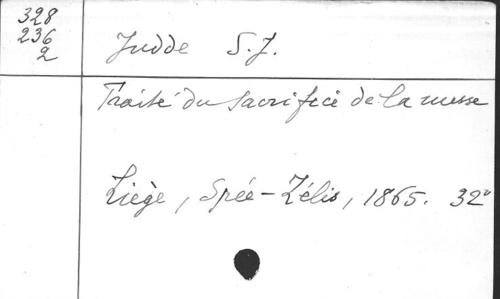 328
236
2
Judde S.J.
Traité du Sacrifice de la messe
Liège, Spée-Zélis, 1865. 32°